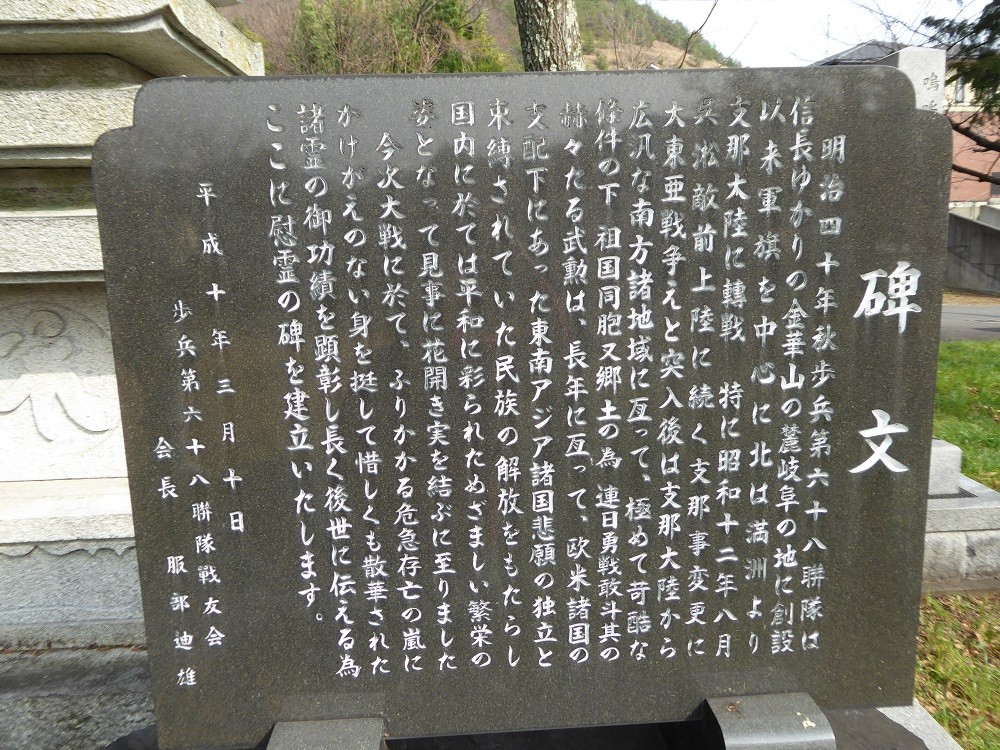 碑文
明治四十年秋歩兵第六十八聯隊は
信長ゆかりの金華山の麓岐阜の地に創設
以来軍旗を中心に北は満洲より
支那大陸に轉戦 特に昭和十二年八月
呉淞敵前上陸に続く支那事変更に
大東亜戦争えと突入後は支那大陸から
広汎な南方諸地域に亙って、極めて苛酷な
條件の下 祖国同胞又郷土の為 連日勇戦敢斗其の
赫々たる武勲は、長年に亙って、欧米諸国の
支配下にあった東南アジア諸国悲願の独立と
束縛されていた民族の解放をもたらし
国内に於ては平和に彩られためざましい繁栄の
姿となって見事に花開き実を結ぶに至りました
今次大戦に於て、ふりかかる危急存亡の嵐に
かけがえのない身を挺して惜しくも散華された
諸霊の御功績を顕彰し長く後世に伝える為
ここに慰霊の碑を建立いたします。
平成十年三月十日
歩兵第六十八聯隊戦友会
会長 服部迪雄
嗚